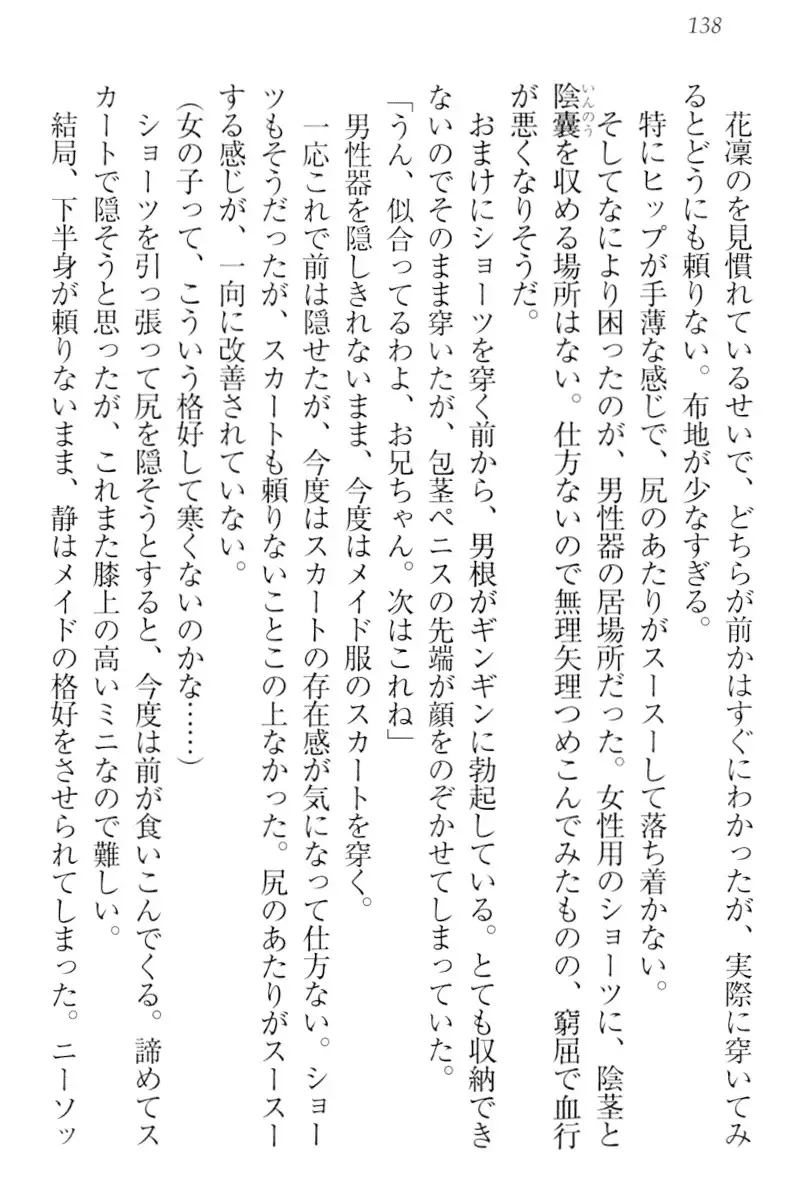 138
花凜のを見慣れているせいで、どちらが前かはすぐにわかったが、実際に穿いてみ
るとどうにも頼りない。布地が少なすぎる。
特にヒップが手薄な感じで、尻のあたりがスースーして落ち着かない。
そしてなにより困ったのが、男性器の居場所だった。女性用のショーツに、陰茎と
陰嚢を収める場所はない。仕方ないので無理矢理つめこんでみたものの、窮屈で血行
いんのう
が悪くなりそうだ。
おまけにショーツを穿く前から、男根がギンギンに勃起している。とても収納でき
ないのでそのまま穿いたが、包茎ペニスの先端が顔をのぞかせてしまっていた。
「うん、似合ってるわよ、お兄ちゃん。次はこれね」
男性器を隠しきれないまま、今度はメイド服のスカートを穿く。
一応これで前は隠せたが、今度はスカートの存在感が気になって仕方ない。ショー
ツもそうだったが、スカートも頼りないことこの上なかった。尻のあたりがスースー
する感じが、一向に改善されていない。
（女の子って、こういう格好して寒くないのかな……）
ショーツを引っ張って尻を隠そうとすると、今度は前が食いこんでくる。諦めてス
カートで隠そうと思ったが、これまた膝上の高いミニなので難しい。
結局、下半身が頼りないまま、静はメイドの格好をさせられてしまった。ニーソッ